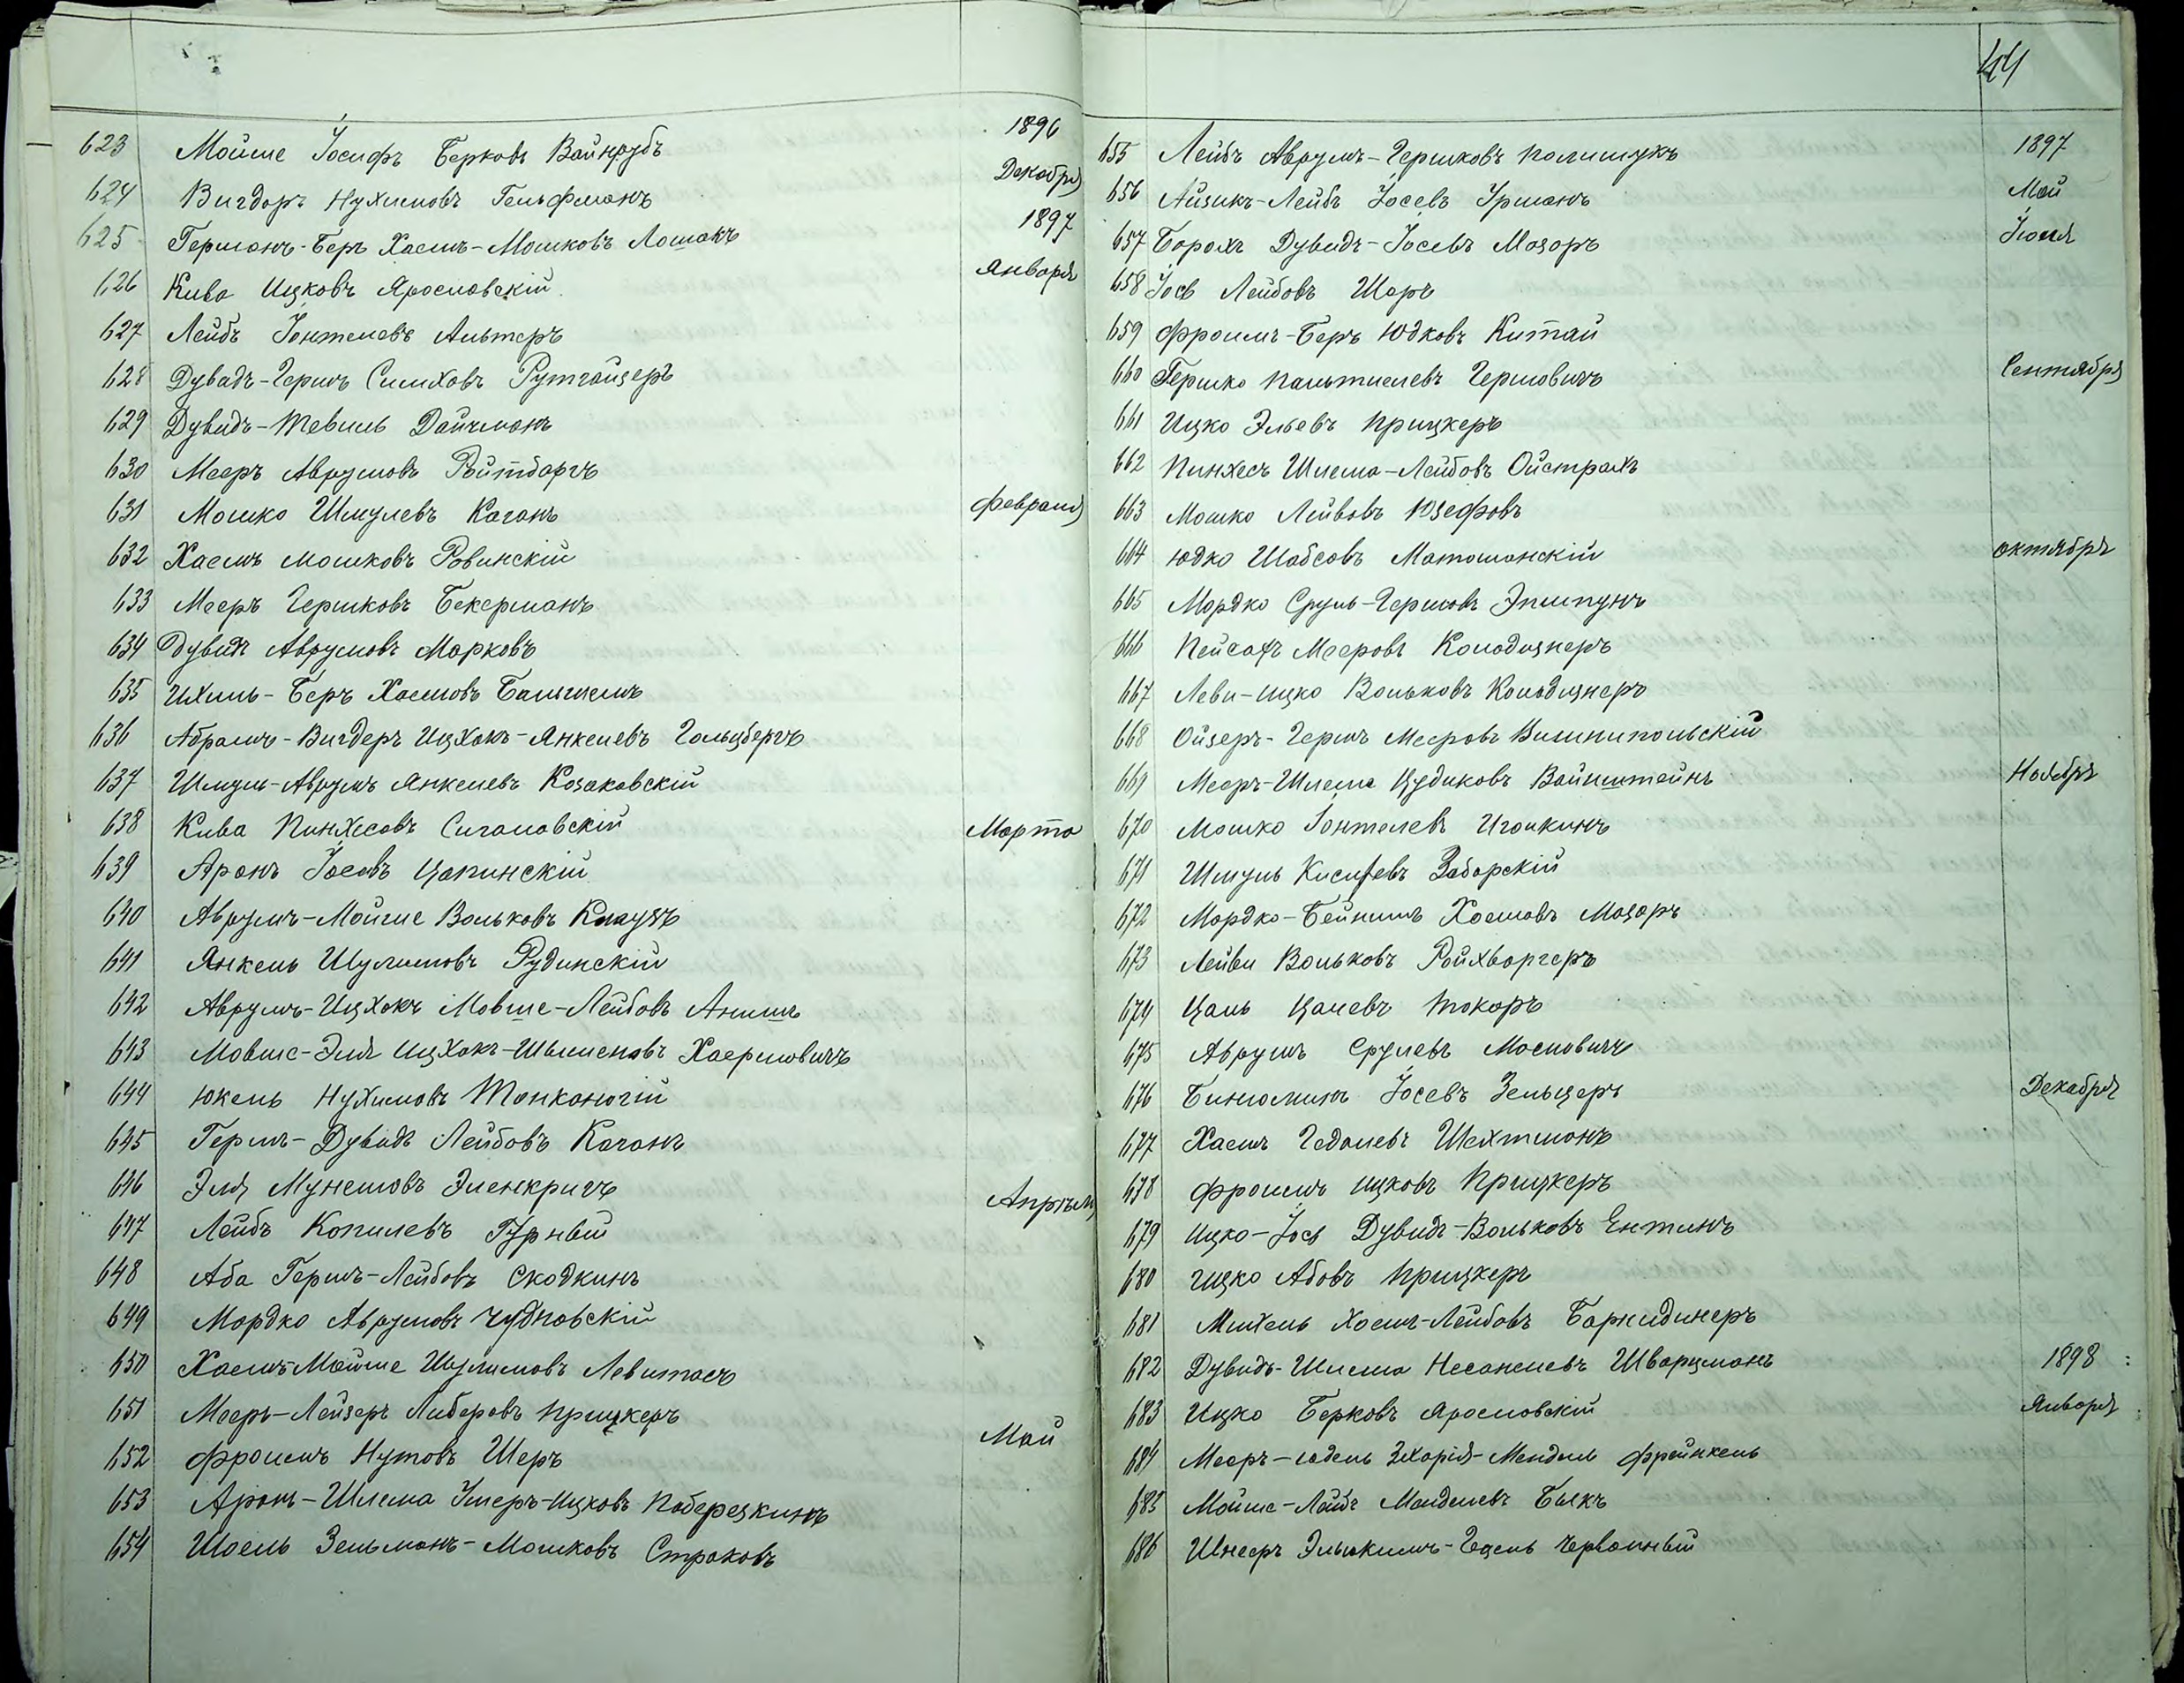 1896
623 Мойше Іосифъ Берковъ Вайнрубъ
Декабря
624 Вигдоръ Нухимовъ Гельфманъ
1897
625 Германъ-Беръ Хаемъ-Мошковъ Лошакъ
Января
626 Кива Ицковъ Ярославскій
627 Лейбъ Іонтелевъ Альтеръ
628 Дувидъ-Гершъ Симховъ Рутгайзеръ
629 Дувидъ-Тевель Дайчманъ
630 Мееръ Аврумовъ Ройтбаргъ
631 Мошко Шмулевъ Каганъ Февраля
632 Хаемъ Мошковъ Ровинскій
633 Мееръ Гершковъ Бекерманъ
634 Дувидъ Аврумовъ Марковъ
635 Ихиль-Беръ Хаемовъ
636 Абрамъ-Вигдеръ Ицхокъ-Янкелевъ Гольцбергъ
637 Шмуль-Аврумъ Янкелевъ Козаковскій
638 Кива Пинхесовъ Сигаловскій Марта
639 Аронъ Іосевъ Цапинскій
640 Аврумъ-Мойше Вольковъ Клаузъ
641 Янкель Шулимовъ Рудинскій
642 Аврумъ-Ицхокъ Мовше-Лейбовъ Анишъ
643 Мовше-Эля Ицхокъ-Шылемовъ
644 Юкель Нухимовъ Тонконогій
645 Гершъ-Дувидъ Лейбовъ Каганъ
646 Эля Мунешовъ Эленкригъ Апрѣля
647 Лейбъ Копилевъ Гурный
648 Аба Гершъ-Лейбовъ Скодкинъ
649 Мордко Аврумовъ Чудновскій
650 Хаемъ-Мойше Шулимовъ Левитасъ
651 Мееръ-Лейзеръ Либеровъ Прицкеръ
Май
652 Фроимъ Нутовъ Шеръ
653 Аронъ-Шлема Умеръ-Ицковъ Поберецкинъ
654 Шоель Зельманъ-Мошковъ Страховъ
44
655 Лейбъ Аврумъ-Гершковъ Полищукъ 1897
656 Айзикъ-Лейбъ Іосевъ Урманъ Май
657 Борохъ Дувидъ-Іосевъ Мазоръ Іюля
658 Іосъ Лейбовъ Шоръ
659 Фроимъ-Беръ Юдковъ Китай
660 Гершко Пальтиелевъ Гершовичъ Сентября
661 Ицко Эльевъ Прицкеръ
662 Пинхесъ Шлема-Лейбовъ Ойстрахъ
663 Мошко Лейвовъ Юзефовъ
664 Юдко Шабсовъ Матошанскій Октябрь
665 Мордко Сруль-Гершовъ
666 Пейсахъ Мееровъ Колодизнеръ
667 Леви-Ицко Вольковъ Колодизнеръ
668 Ойзеръ-Гершъ Мееровъ Вишнипольскій
669 Мееръ-Шлема Цудиковъ Вайнштейнъ Ноябрь
670 Мошко Іонтелевъ Иголкинъ
671 Шмуль Кисилевъ Заборскій
672 Мордко-Бейнишъ Хаемовъ Мазоръ
673 Лейви Вольковъ Ройхваргеръ
674 Цаль Цалевъ Токоръ
675 Аврумъ Срулевъ Мосиовичъ
676 Биніоминъ Іосевъ Зельцеръ Декабря
677 Хаемъ Гедалевъ Шехтманъ
678 Фроимъ Ицковъ Прицкеръ
679 Ицко-Іосъ Дувидъ-Вольковъ Ентинъ
680 Ицко Абовъ Прицкеръ
681 Михель Хаемъ-Лейбовъ Баркидинеръ
682 Дувидъ-Шлема Несанелевъ Шварцманъ 1898
683 Ицко Берковъ Ярославскій Января
684 Мееръ-Юдель Зехарія-Мендель Френкель
685 Мойше-Лейбъ Менделевъ Быкъ
686 Шнееръ Эльякимъ-Гецель Червонный